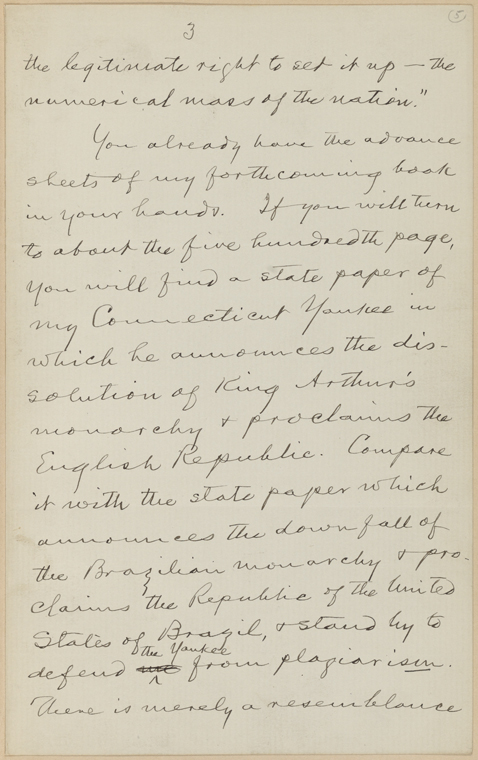 (5)
3
the legitimate right to set it up — the
numerical mass of the nation."
You already have the advance
sheets of my forthcoming book
in your hands. If you will turn
to about the five hundredth page,
you will find a state paper of
my Connecticut Yankee in
which he announces the dis-
solution of King Arthur's
monarchy & proclaims the
English Republic. Compare
it with the state paper which
announces the downfall of
the Brazilian monarchy & pro-
claims the Republic of the United
States of Brazil, & stand by to
the Yankee
defend from plagiarism.
There is merely a resemblance